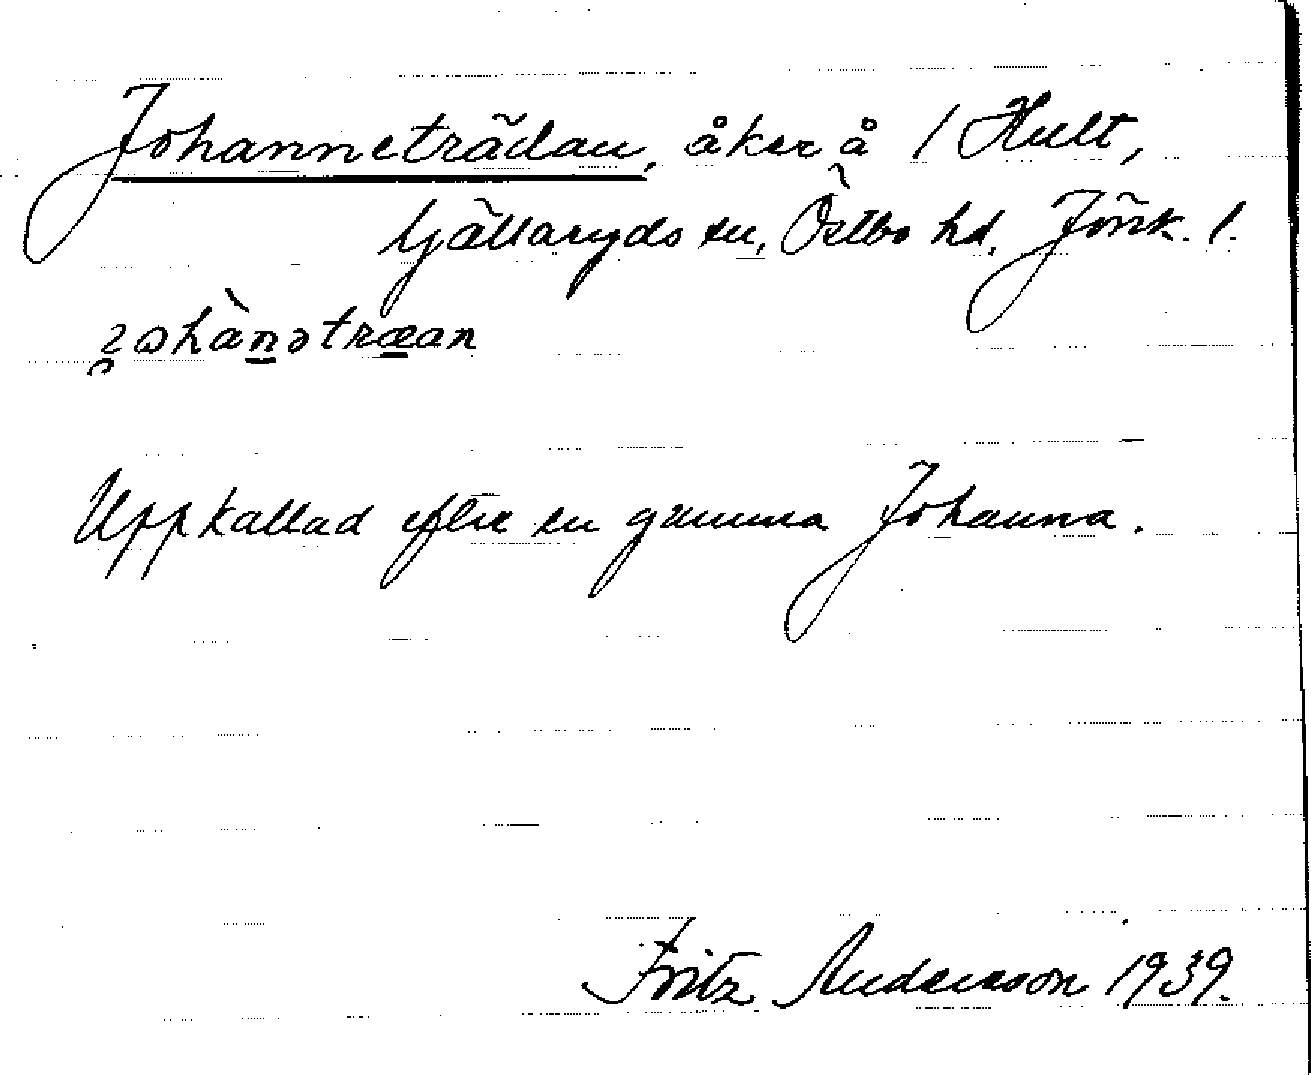 Johanneträdan, åker å 1 Hult,
Gällaryds sn, Östbo hd. Jönk. l.
Uppkallad efter en gumma Johanna.
Fritz Andersson 1939.